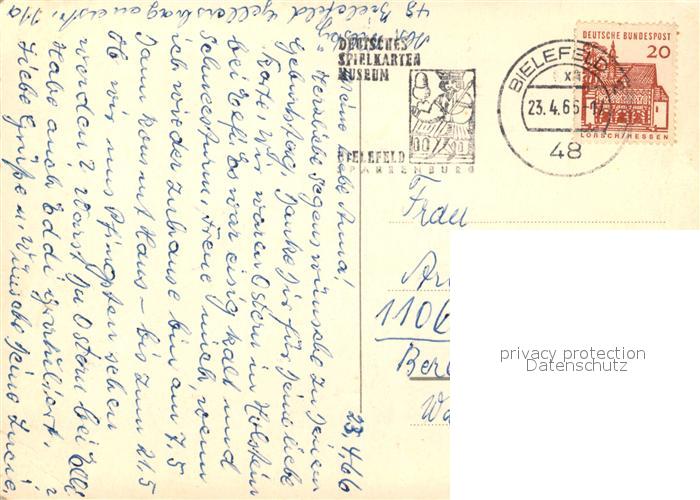 DEUTSCHES
SPIELKARTEN
MUSEUM
BIELEFELD
SPARRENBURG
BIELEFELD
23.4.66
48
DEUTSCHE BUNDESPOST
20
LORSCH/HESSEN
48 Bielefeld 11a
23.4.66
Meine liebe Anna!
Herzliche Segenswünsche zu Deinem
Geburtstag, Danke Dir für Deine liebe
Karte. Wir waren Ostern in Holstein
bei Es war eisig kalt und
Schneesturm. Freue mich, wenn
ich wieder zuhause bin am 7.5
Dann kommt Haus - bis zum 21.5
Ob wir uns Pfingsten sehen
werden? Warst Du Ostern bei Elli
Habe auch Eddi gratuliert.
Liebe Grüße u. Wünsche Deine
Frau
1106
Ber
privacy protection
Datenschutz